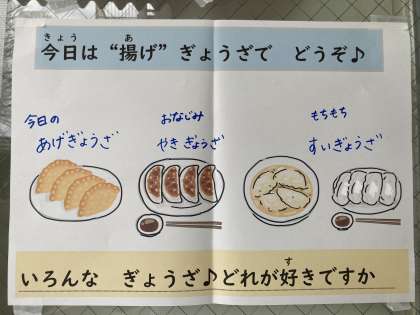 きょう　　　あ
今日は “揚げ” ぎょうざで　どうぞ♪
今日の
あげぎょうざ
おなじみ
やき ぎょうざ
もちもち
すいぎょうざ
す
いろんな　ぎょうざ♪どれが好きですか